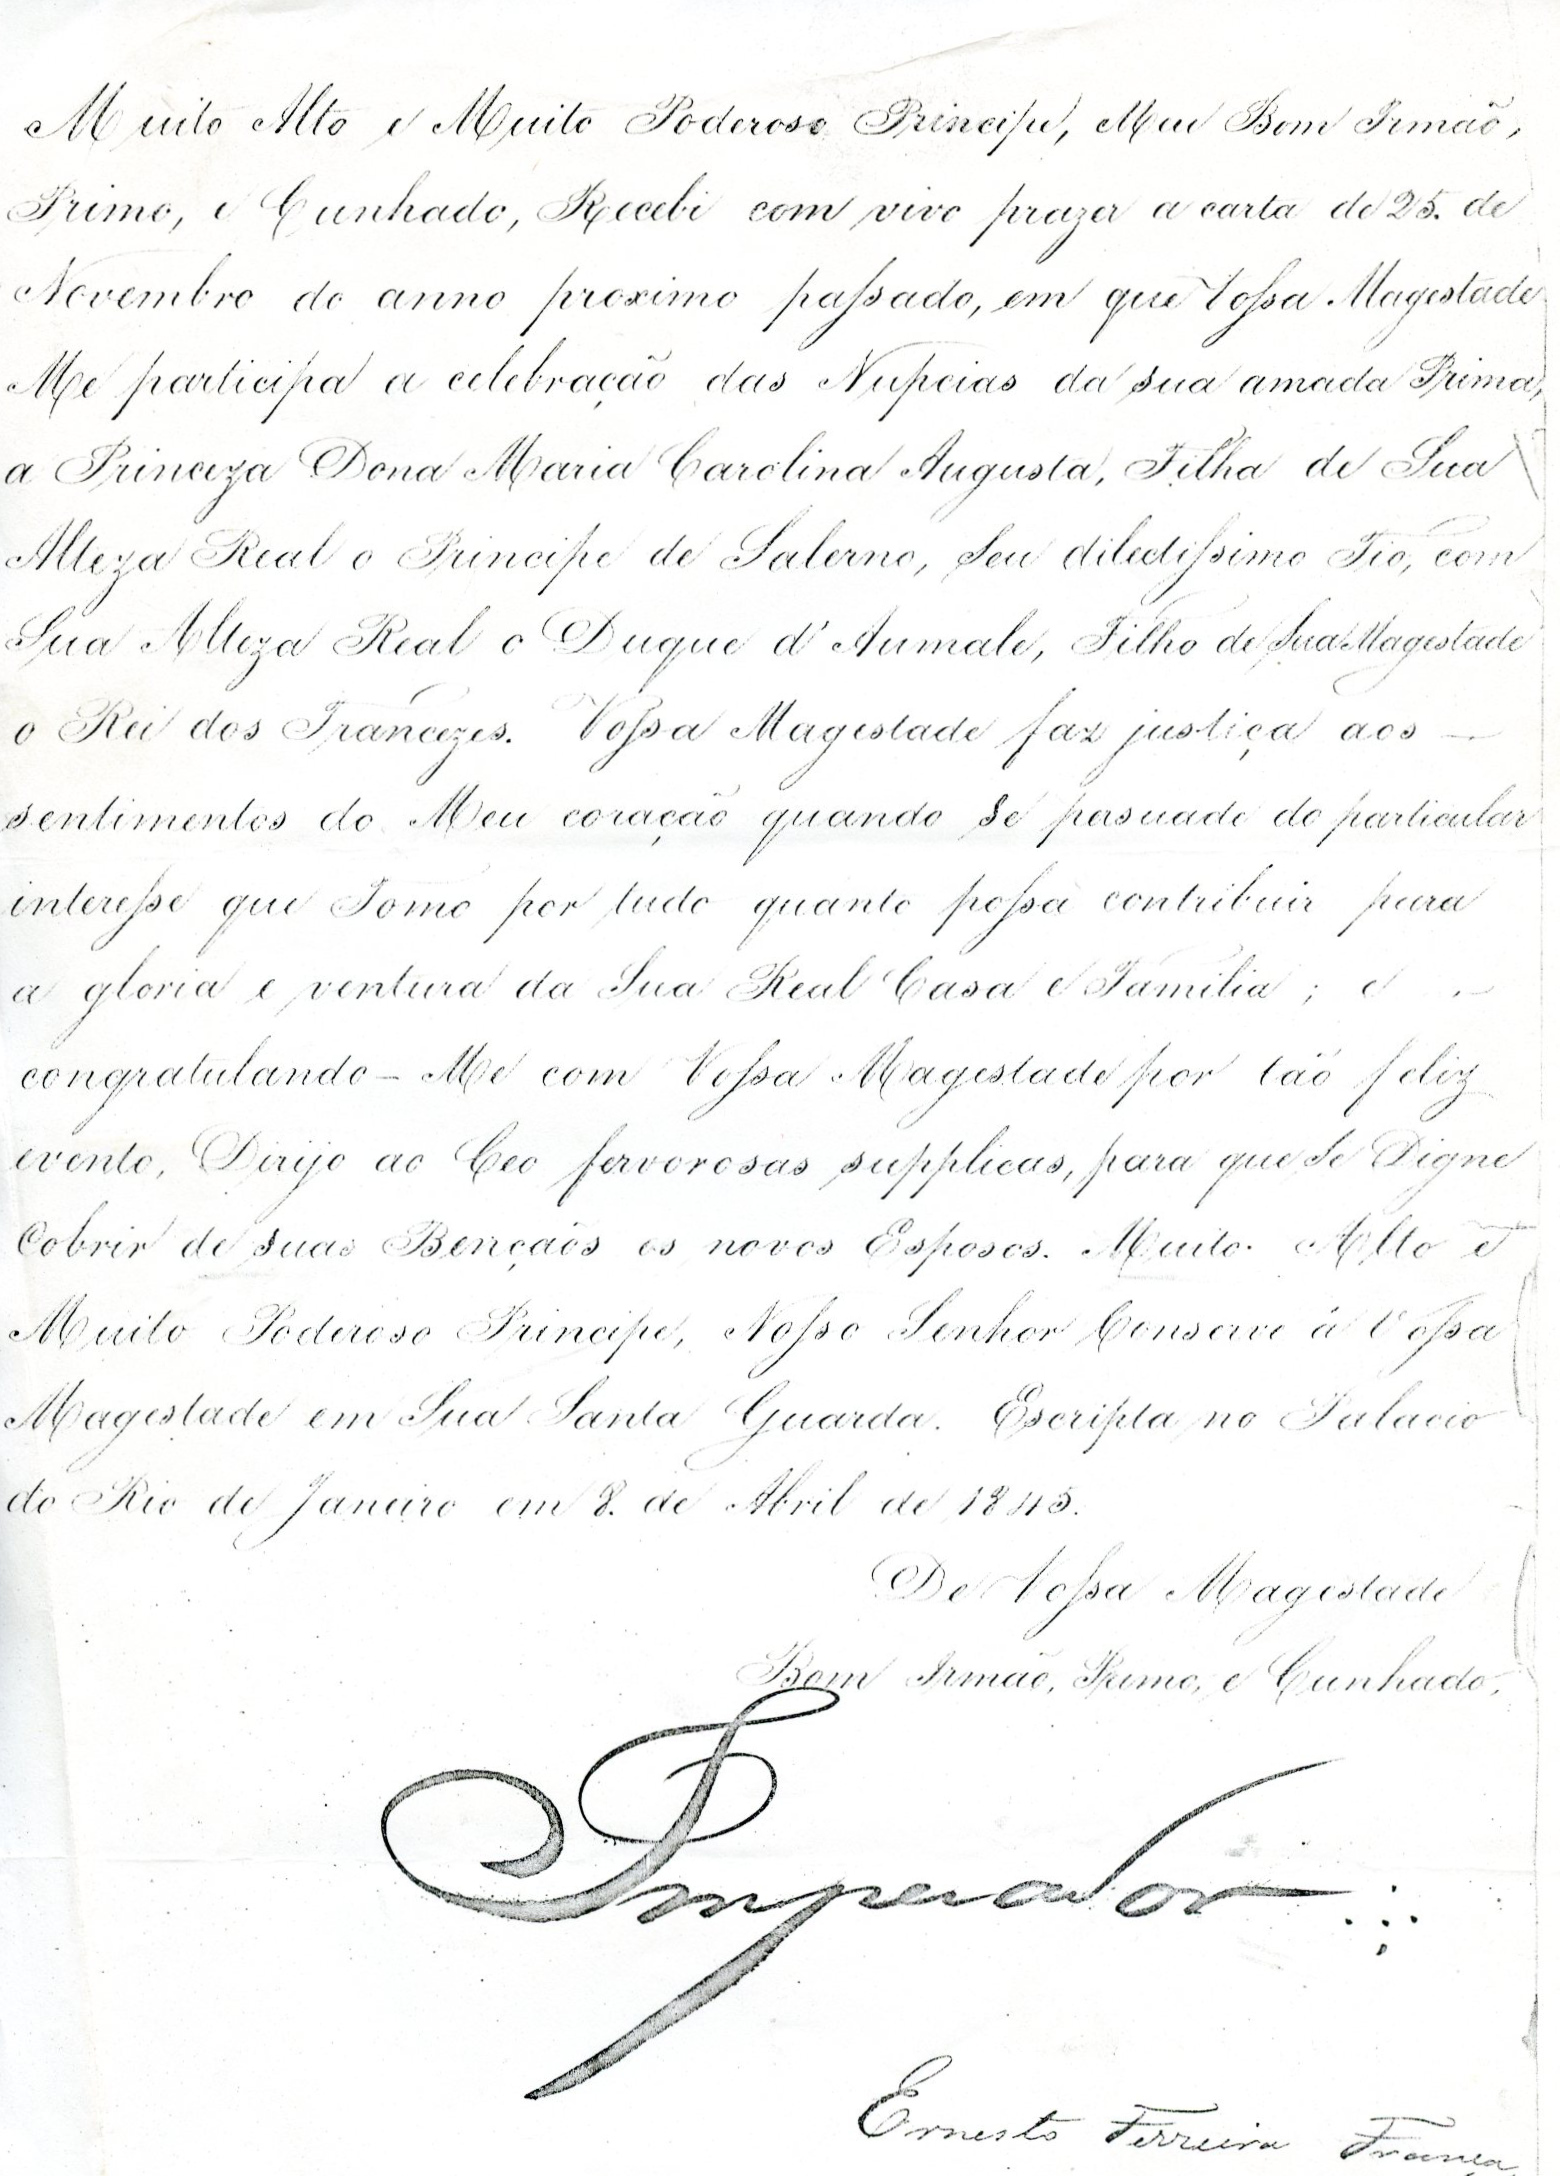 Muito Alto e Muito Poderoso Principe, Meu Bom Irmão,
Primo, e Cunhado, Recebi com vivo prazer a carta de 25. de
Novembro do anno proximo passado, em que Vossa Magestade
Me participa a celebração das Nupcias da sua amada Prima,
a Princeza Dona Maria Carolina Augusta, Filha de Sua
Alteza Real o Principe de Salerno, Seu dilectissimo Tio, com
Sua Alteza Real o Duque d'Aumale, Filho de Sua Magestade
o Rei dos Francezes. Vossa Magestade faz justiça aos —
sentimentos do Meu coração quando Se persuade do particular
interesse que Tomo por tudo quanto possa contribuir para
a gloria e ventura da Sua Real Casa e Familia; e —
congratulando-Me com Vossa Magestade por tão feliz
evento, Dirijo ao Ceo fervorosas supplicas, para que Se Digne
Cobrir de suas Bençãos os novos Esposos. Muito Alto e
Muito Poderoso Principe, Nosso Senhor Conserve á Vossa
Magestade em Sua Santa Guarda. Escripta no Palacio
do Rio de Janeiro em 8. de Abril de 1845.
De Vossa Magestade
Bom Irmão, Primo, e Cunhado,
Imperador
Ernesto Ferreira França